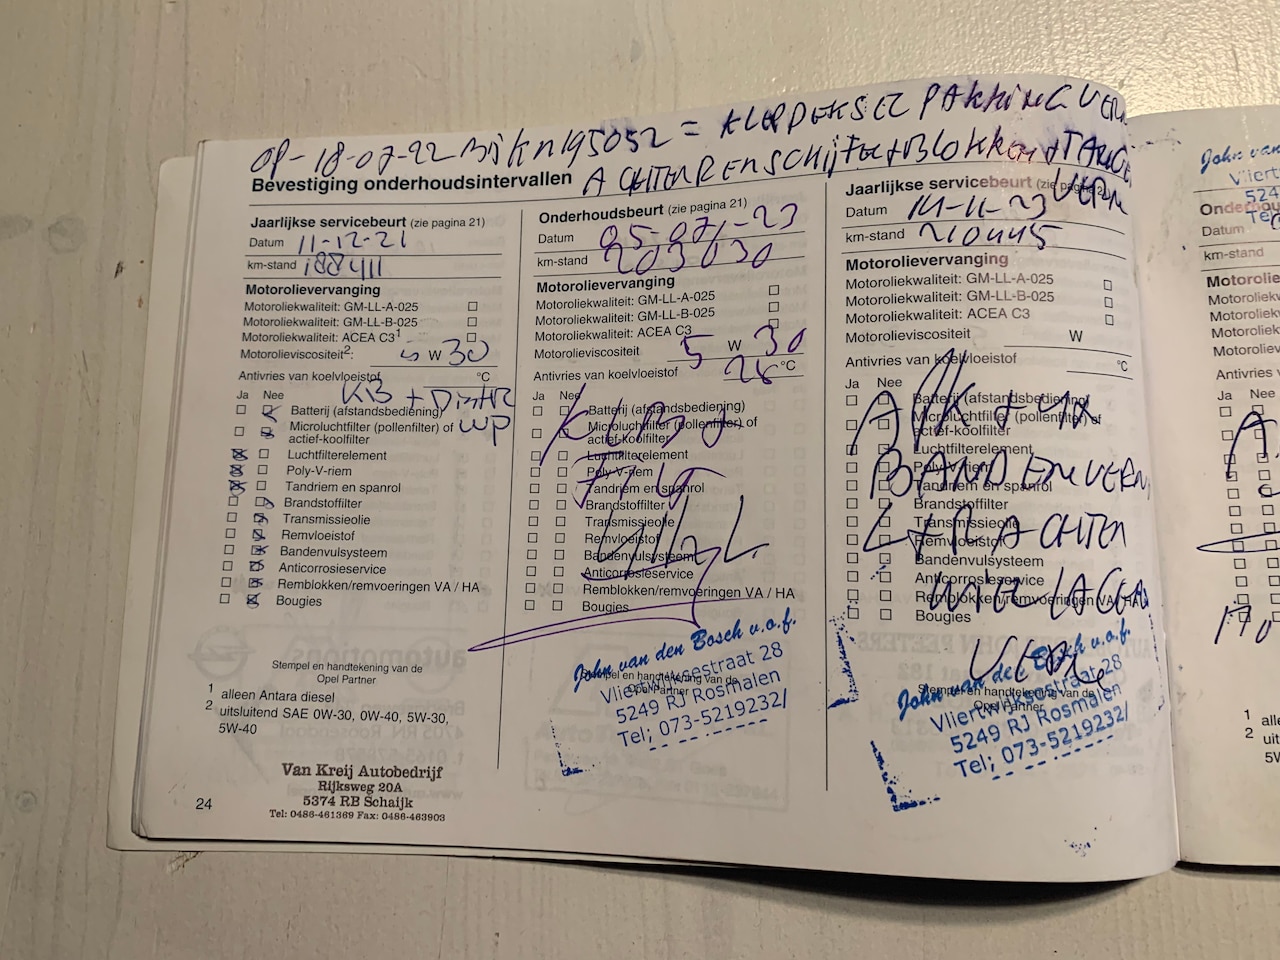 OP-18-07-22 Bij Kn 195052 = KLEPDEKSEL PAKKING VERN
ACHTER REMSCHijfen + BLOKKEN + TANGEN VERN
Bevestiging onderhoudsintervallen
Jaarlijkse servicebeurt (zie pagina 21)
Datum 11-12-21
km-stand 188411
Motorolievervanging
Motoroliekwaliteit: GM-LL-A-025
Motoroliekwaliteit: GM-LL-B-025
Motoroliekwaliteit: ACEA C3¹
Motorolieviscositeit²: 5 W 30
Antivries van koelvloeistof °C
KB + Distr
WP
Ja Nee
Batterij (afstandsbediening)
Microluchtfilter (pollenfilter) of
actief-koolfilter
Luchtfilterelement
Poly-V-riem
Tandriem en spanrol
Brandstoffilter
Transmissieolie
Remvloeistof
Bandenvulsysteem
Anticorrosieservice
Remblokken/remvoeringen VA / HA
Bougies
Stempel en handtekening van de
Opel Partner
1 alleen Antara diesel
2 uitsluitend SAE 0W-30, 0W-40, 5W-30,
5W-40
Van Kreij Autobedrijf
Rijksweg 20A
5374 RB Schaijk
Tel: 0486-461369 Fax: 0486-463903
24
Onderhoudsbeurt (zie pagina 21)
Datum 05-07-23
km-stand 203030
Motorolievervanging
Motoroliekwaliteit: GM-LL-A-025
Motoroliekwaliteit: GM-LL-B-025
Motoroliekwaliteit: ACEA C3
Motorolieviscositeit 5 W 30
Antivries van koelvloeistof 26 °C
Ja Nee
Batterij (afstandsbediening)
Microluchtfilter (pollenfilter) of
actief-koolfilter
Luchtfilterelement
Poly-V-riem
Tandriem en spanrol
Brandstoffilter
Transmissieolie
Remvloeistof
Bandenvulsysteem
Anticorrosieservice
Remblokken/remvoeringen VA / HA
Bougies
Stempel en handtekening van de
Opel Partner
John van den Bosch v.o.f.
Vliertwijksestraat 28
5249 RJ Rosmalen
Tel; 073-5219232/
Jaarlijkse servicebeurt (zie pagina 21)
Datum 14-11-23
km-stand 210445
Motorolievervanging
Motoroliekwaliteit: GM-LL-A-025
Motoroliekwaliteit: GM-LL-B-025
Motoroliekwaliteit: ACEA C3
Motorolieviscositeit W
Antivries van koelvloeistof °C
Ja Nee
Batterij (afstandsbediening)
Microluchtfilter (pollenfilter) of
actief-koolfilter
Luchtfilterelement
Poly-V-riem
Tandriem en spanrol
Brandstoffilter
Transmissieolie
Remvloeistof
Bandenvulsysteem
Anticorrosieservice
Remblokken/remvoeringen VA / HA
Bougies
APK + 4x
BANDEN VERN
L+R ACHTER
WIELLAGER
VERN
Stempel en handtekening van de
Opel Partner
John van den Bosch v.o.f.
Vliertwijksestraat 28
5249 RJ Rosmalen
Tel; 073-5219232/
John van
Vliert
5249
Te
Onderhou
Datum
km-stand
Motorolie
Motoroliekw
Motoroliekw
Motoroliekw
Motorolievis
Antivries v
Ja Nee
1 alle
2 uit
5W